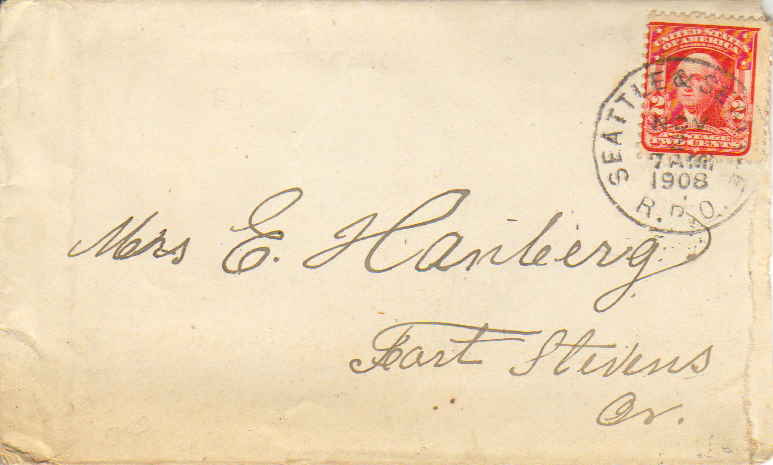 UNITED STATES
OF AMERICA
2 2
SEATTLE &
NOV
7 AM
1908
R.P.O.
Mrs E. Hanberg
Fort Stevens
Or.